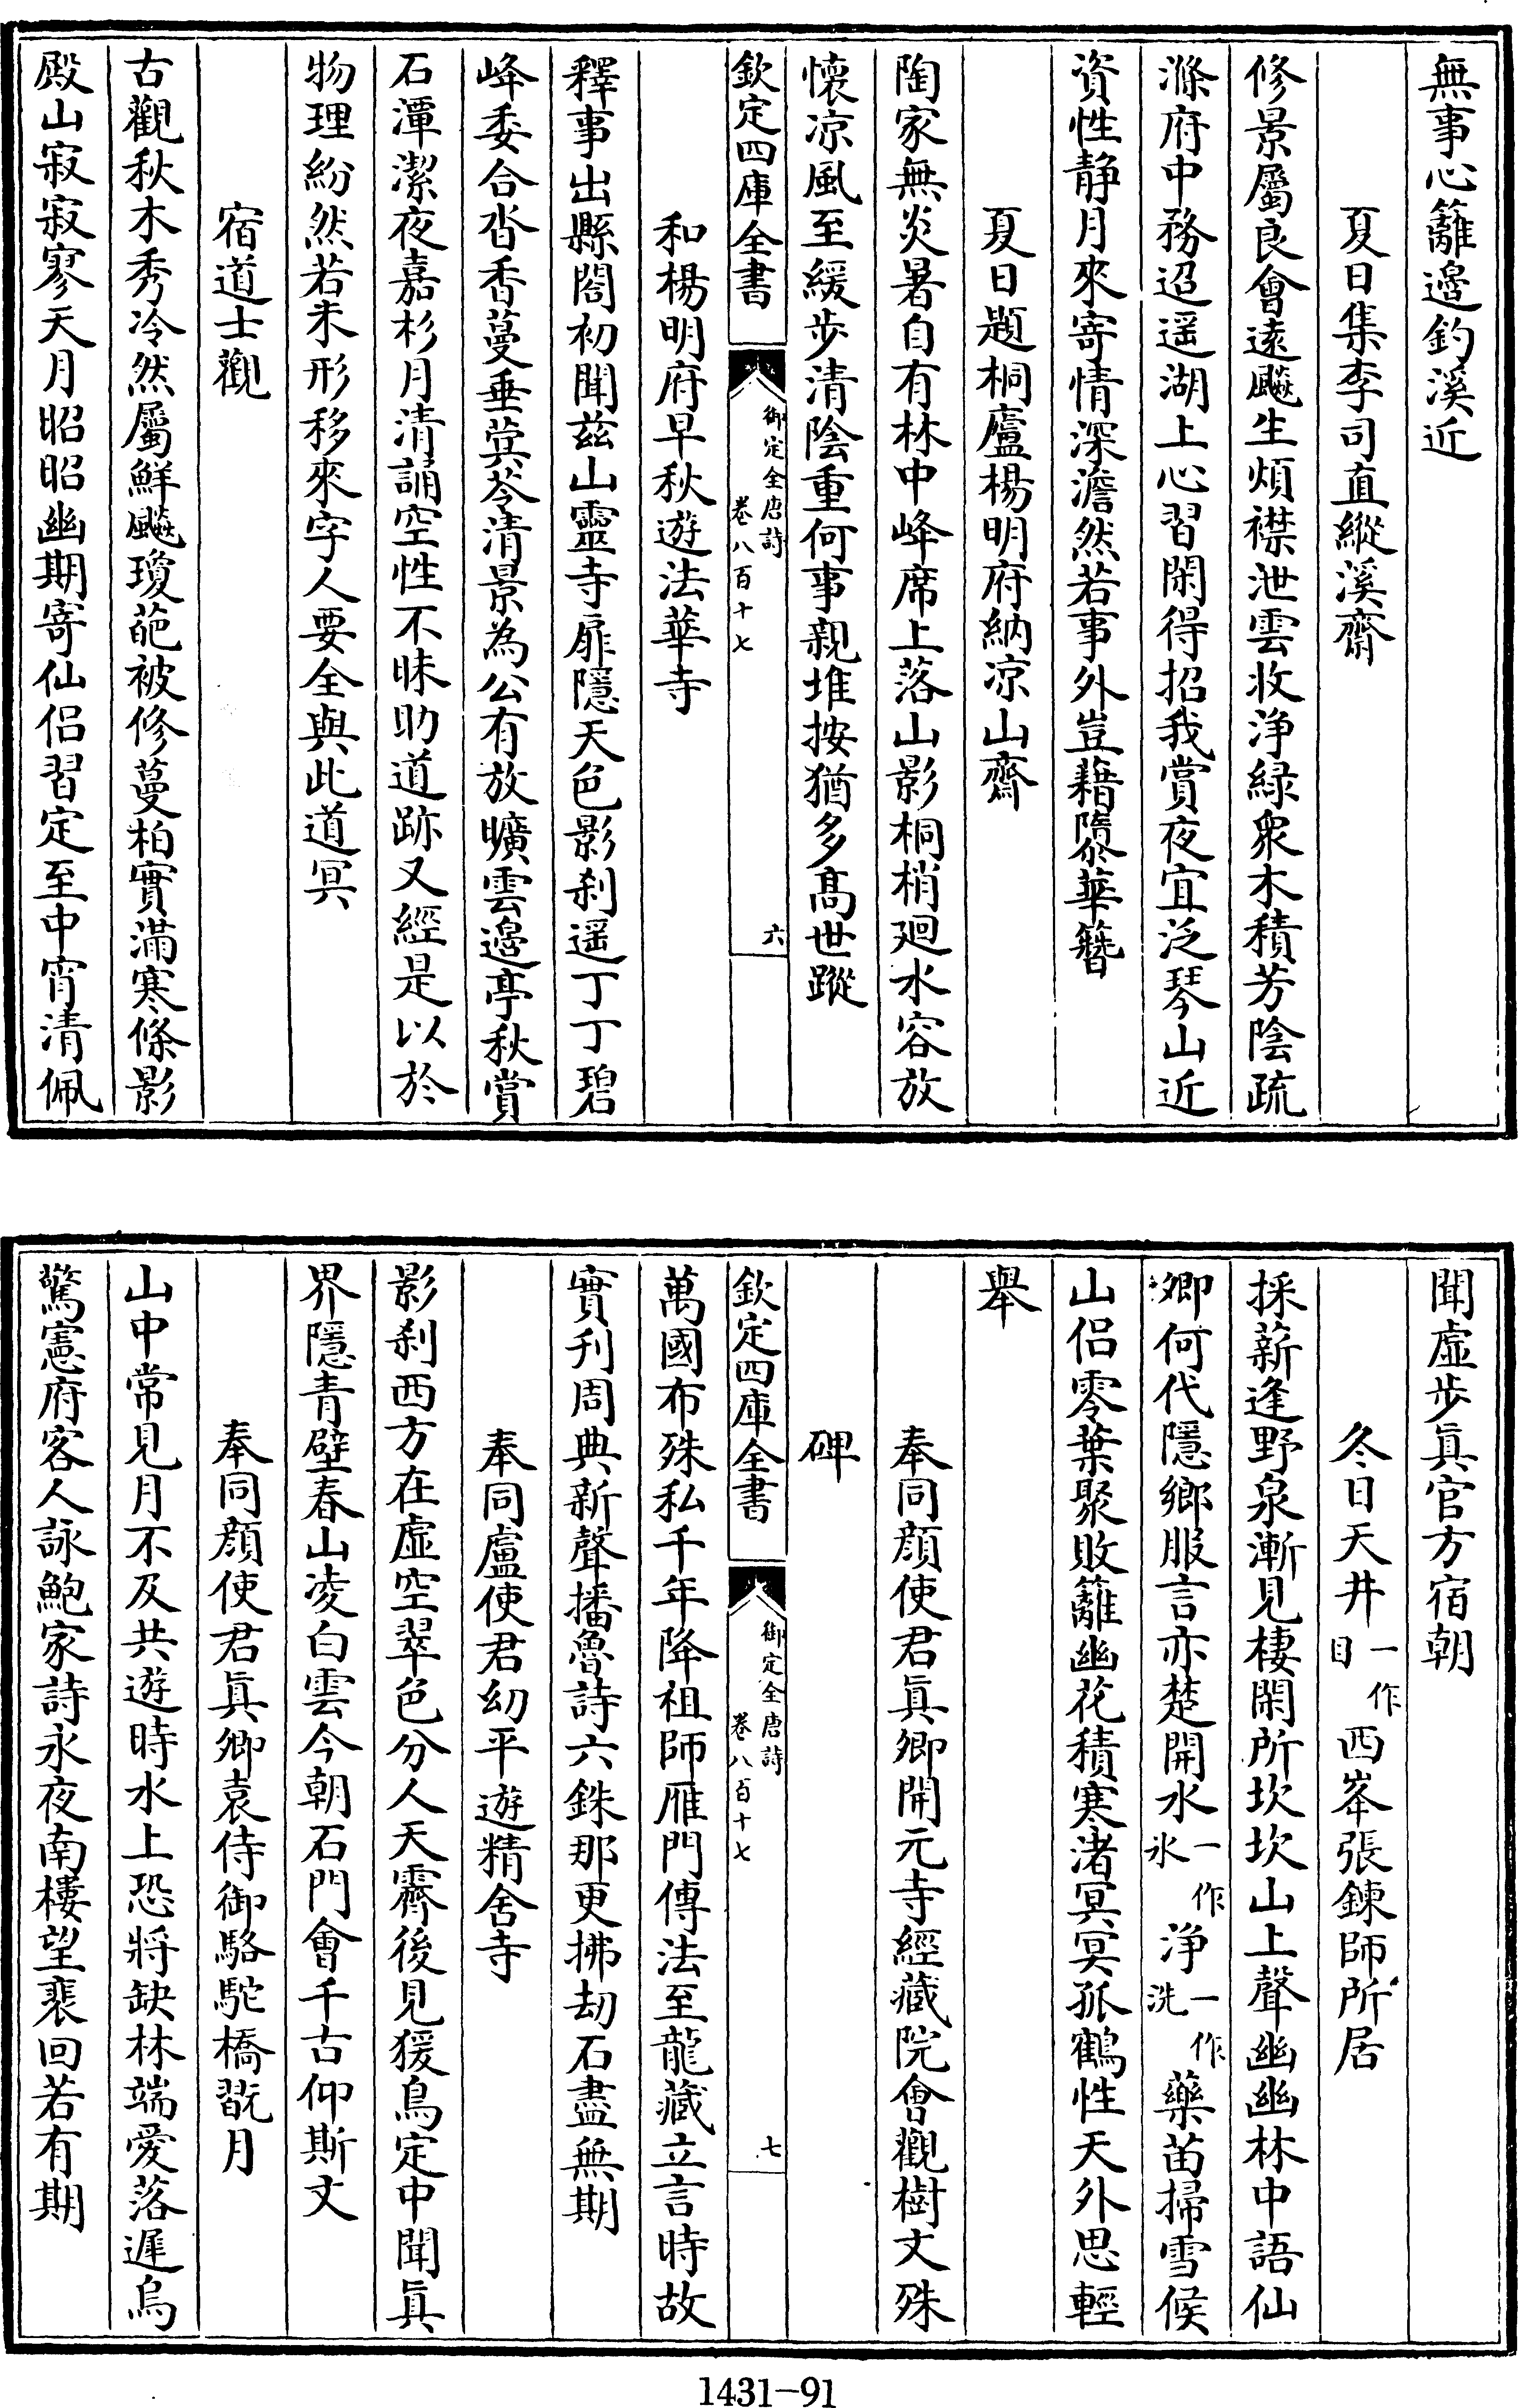 無事心籬邉釣溪近
夏日集李司直縱溪齋
修景屬良會遠飈生煩襟泄雲收浄緑衆木積芳陰疏
滌府中務迢遥湖上心習閑得招我賞夜宜泛琴山近
資性静月來寄情深澹然若事外豈藉隳華簪
夏日題桐廬楊明府納凉山齋
陶家無炎暑自有林中峰席上落山影桐梢迴水容放
懷凉風至緩步清陰重何事親堆按猶多髙世蹤
欽定四庫全書
御定全唐詩
卷八百十七
六
和楊明府早秋遊法華寺
釋事出縣閤初聞兹山靈寺扉隱天色影刹遥丁丁碧
峰委合沓香蔓垂蓂苓清景為公有放曠雲邉亭秋賞
石潭潔夜嘉杉月清誦空性不昧助道跡又經是以於
物理紛然若未形移來字人要全與此道冥
宿道士觀
古觀秋木秀冷然屬鮮飈瓊葩被修蔓柏實滿寒條影
殿山寂寂寥天月昭昭幽期寄仙侣習定至中宵清佩
聞虚步眞官方宿朝
冬日天井一作目西峯張鍊師所居
採薪逢野泉漸見棲閑所坎坎山上聲幽幽林中語仙
卿何代隱鄉服言亦楚開水一作氷浄一作洗藥苗掃雪候
山侣零葉聚敗籬幽花積寒渚冥冥孤鶴性天外思輕
舉
奉同顔使君眞卿開元寺經藏院會觀樹文殊
碑
欽定四庫全書
御定全唐詩
卷八百十七
七
萬國布殊私千年降祖師雁門傳法至龍藏立言時故
實刋周典新聲播魯詩六銖那更拂劫石盡無期
奉同盧使君幼平遊精舍寺
影刹西方在虚空翠色分人天霽後見猨鳥定中聞眞
界隱青壁春山凌白雲今朝石門會千古仰斯文
奉同顔使君眞卿袁侍御駱駝橋翫月
山中常見月不及共遊時水上恐將缺林端愛落遲烏
驚憲府客人詠鮑家詩永夜南樓望裴回若有期
1431-91